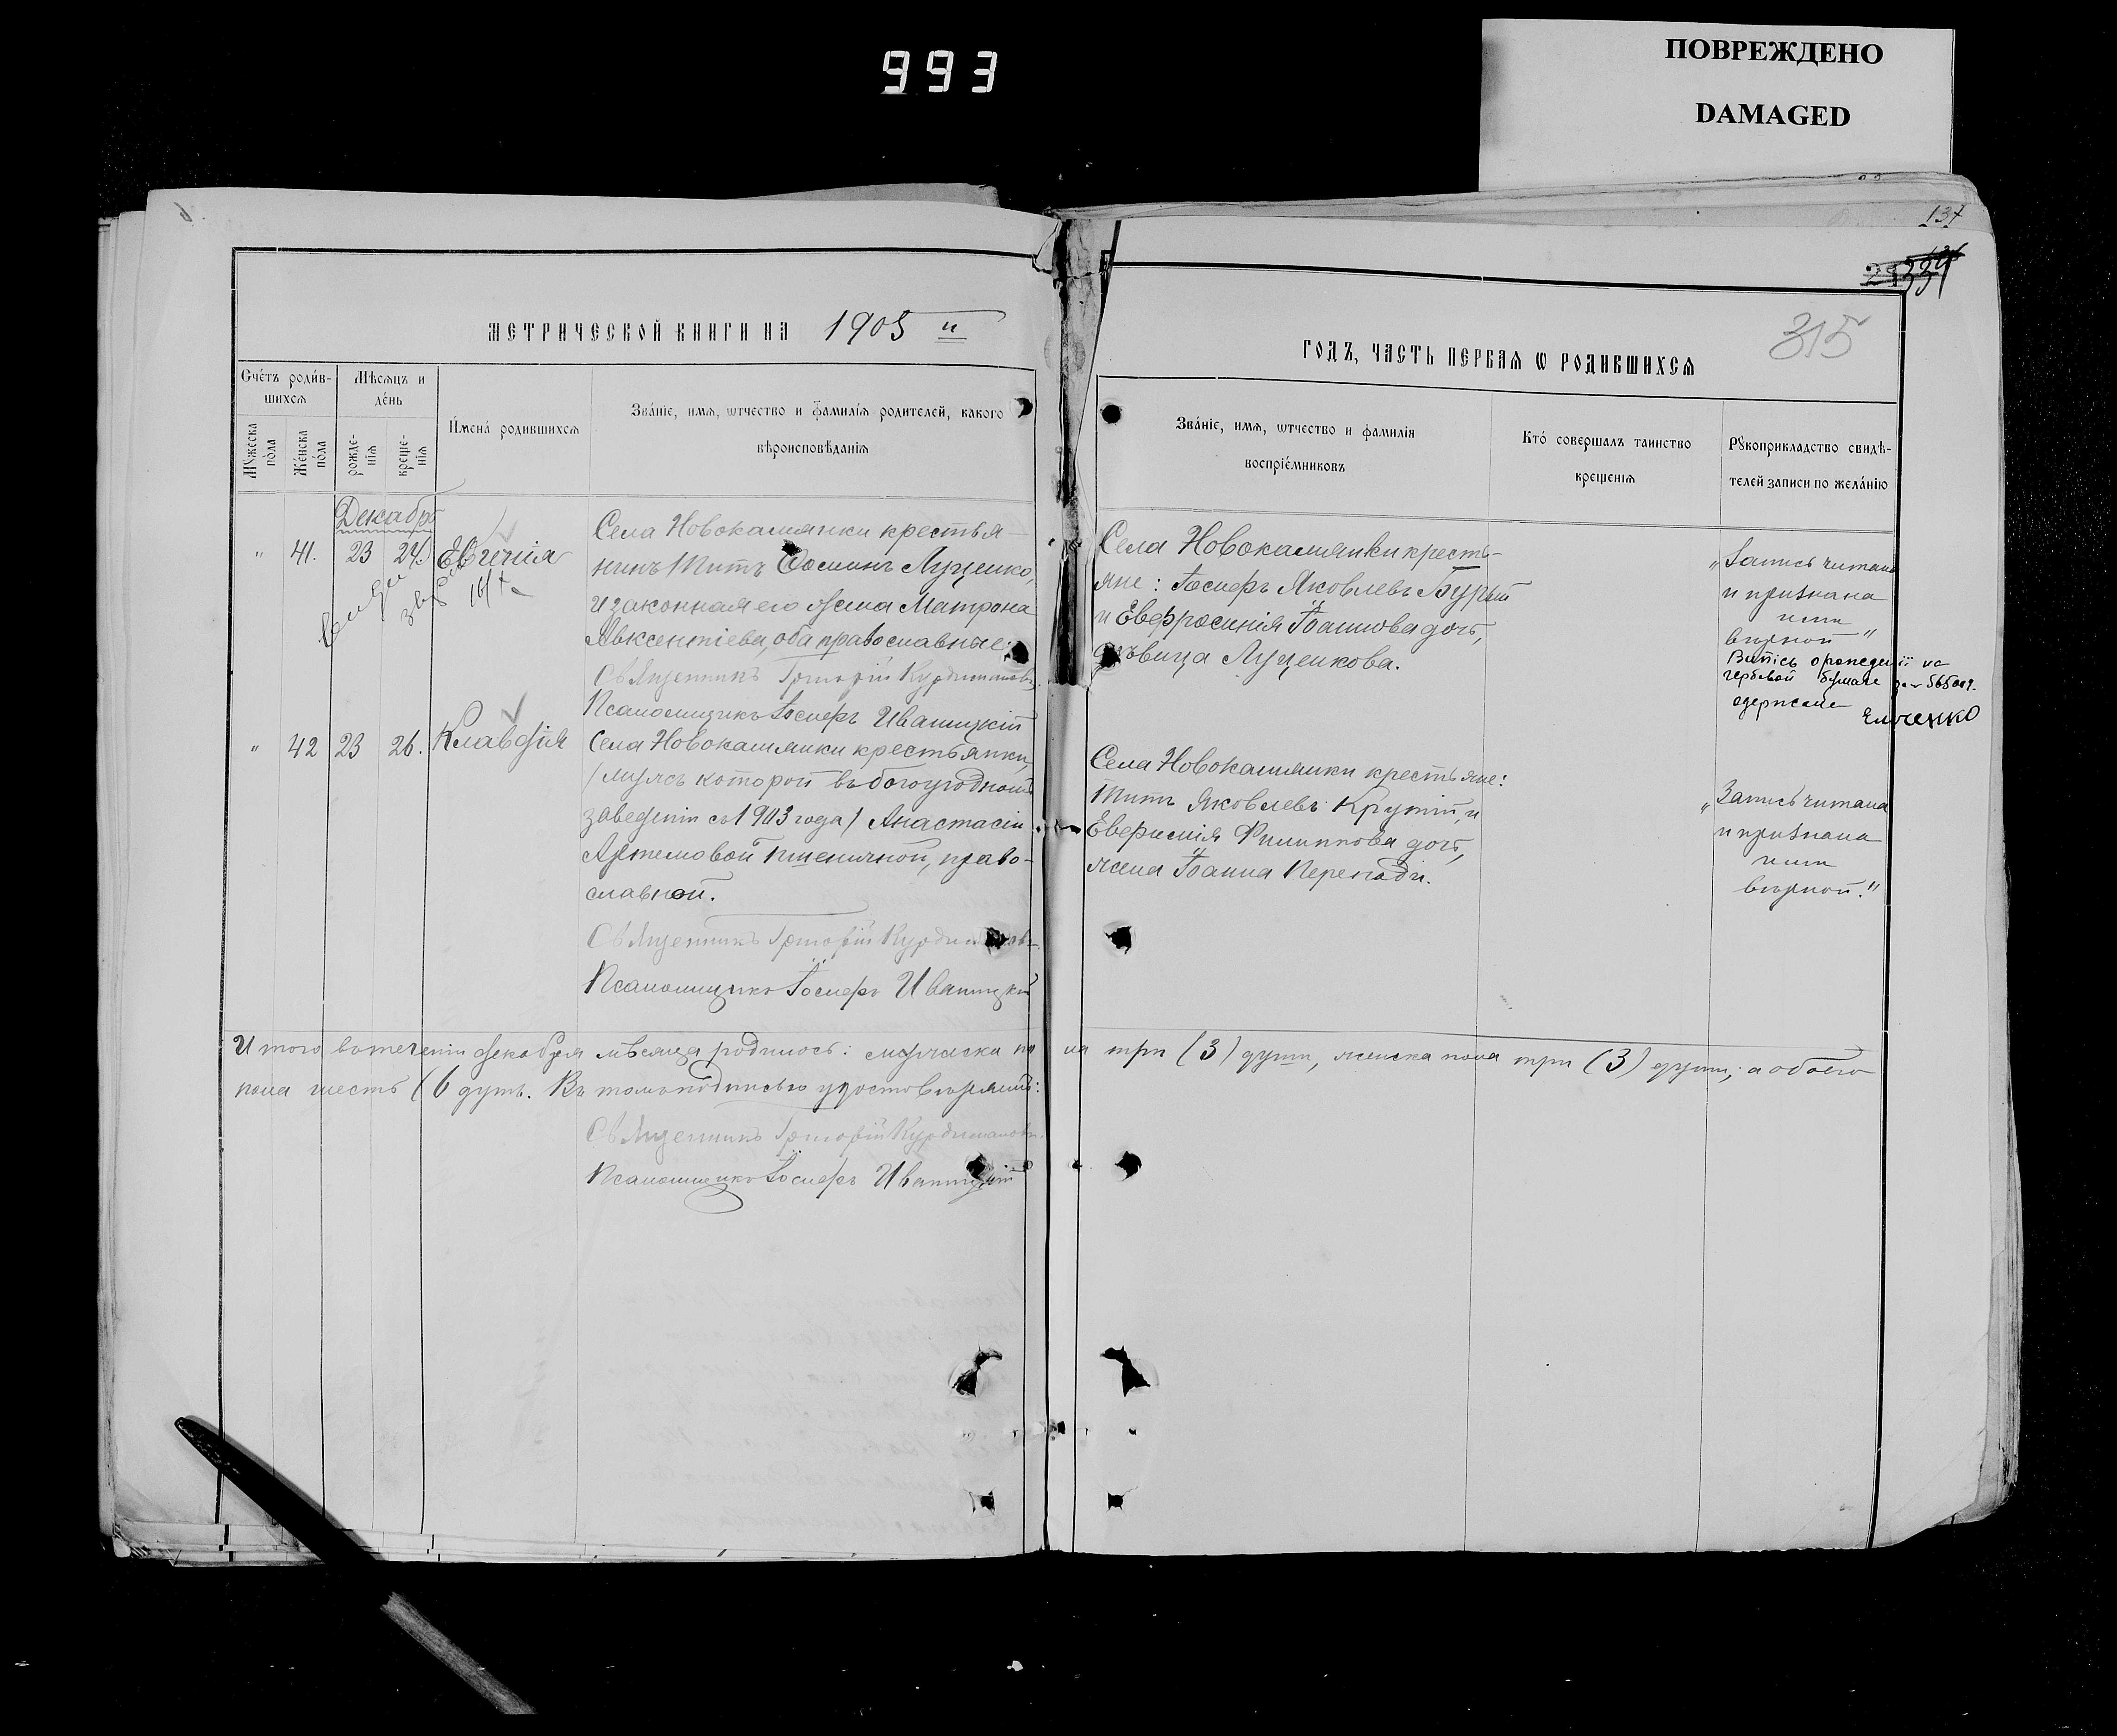 993
ПОВРЕЖДЕНО
DAMAGED
137
315
МЕТРИЧЕСКОЙ КНИГИ НА 1905 й
ГОДЪ, ЧАСТЬ ПЕРВАЯ Ѡ РОДИВШИХСЯ
Счетъ родив-
шихся
Мѣсяцъ и
день
Мужеска
пола
Женска
пола
рожде-
нія
креще-
нія
Имена родившихся
Званіе, имя, ѡтчество и фамилія родителей, какого
вѣроисповѣданія
Званіе, имя, ѡтчество и фамилія
воспріемниковъ
Кто совершалъ таинство
крещенія
Рꙋкоприкладство свидѣ-
телей записи по желанію
Декабрь
" 41. 23 24. Евгенія
Села Новокамянки крестья-
нинъ Титъ Луценко,
и законная его жена Матрона
Авксентіева, оба православные.
Священникъ Григорій Курдимановъ
Псаломщикъ Іосифъ Иваницкій
Села Новокамянки кресть-
яне: Іосифъ Яковлевъ Бурый
и Евфросинія Іоаннова дочь,
дѣвица Луценкова.
"Запись читана
и признана
ими
вѣрной"
гербовой бумаге
Ельченко
" 42 23 26. Клавдія
Села Новокамянки крестьянки,
/мужъ которой въ богоугодномъ
заведеніи съ 1903 года/ Анастасіи
Артемовой Пшеничной, право-
славной.
Священникъ Григорій Курдимановъ
Псаломщикъ Іосифъ Иваницкій
Села Новокамянки крестьяне:
Титъ Яковлевъ Крутій, и
Евфимія Филиппова дочь,
жена Іоанна Перепади.
"Запись читана
и признана
ими
вѣрной."
Итого въ теченіи декабря мѣсяца родилось: мужеска по ла три (3) души, женска пола три (3) души; а обоего
пола шесть (6 душъ. Въ томъ подписью удостовѣряемъ:
Священникъ Григорій Курдимановъ
Псаломщикъ Іосифъ Иваницкій